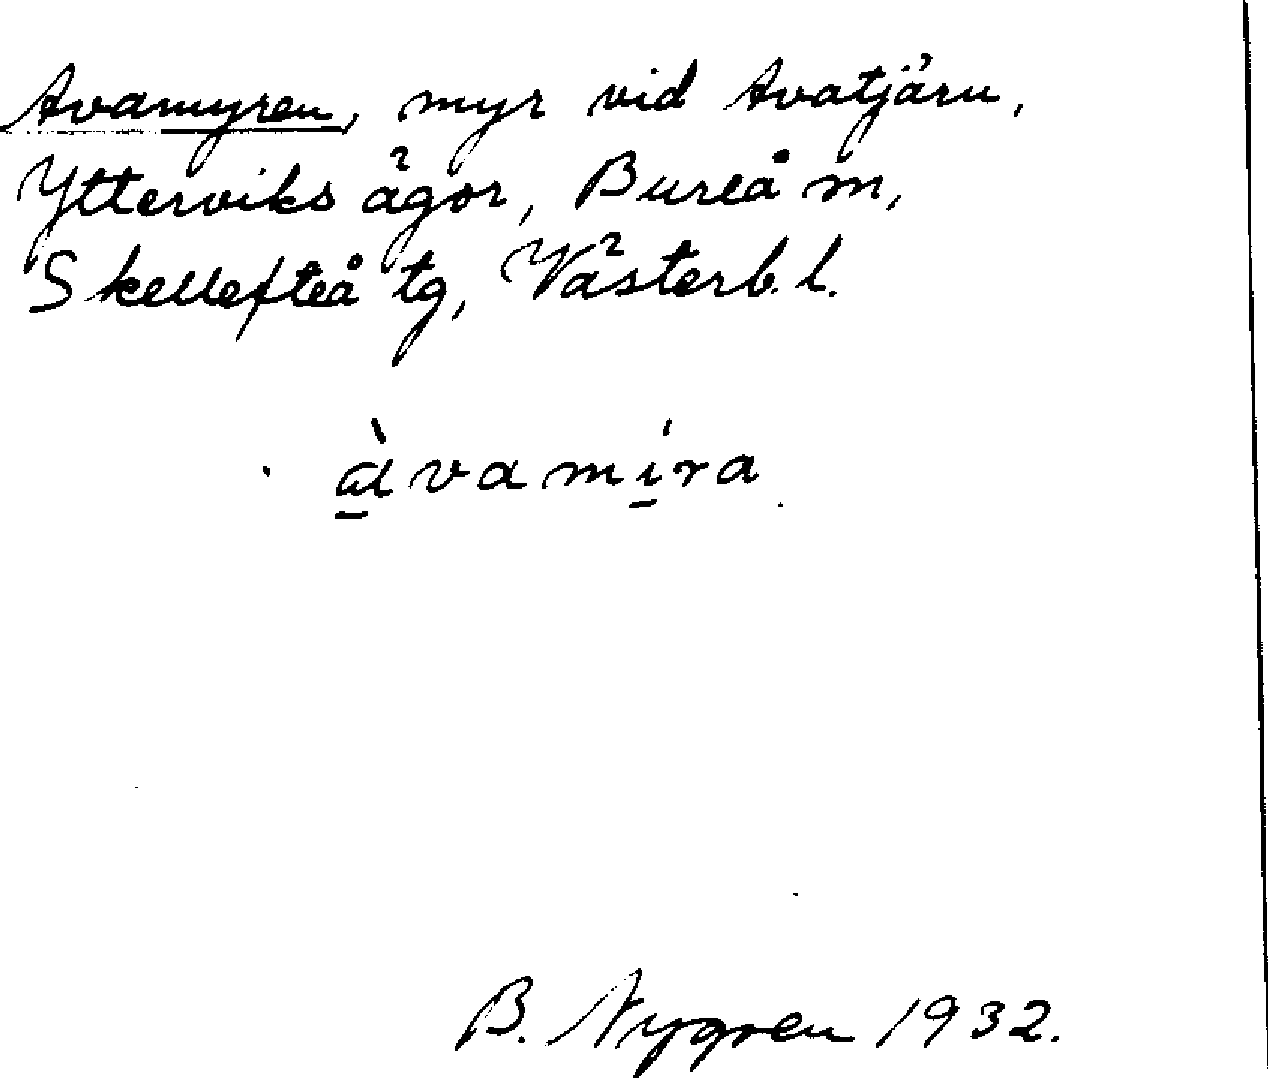 Avamyren, myr vid Avatjärn,
Ytterviks ägor, Bureå m,
Skellefteå tg, Västerb. l.
àvamíra
B. Nygren 1932.